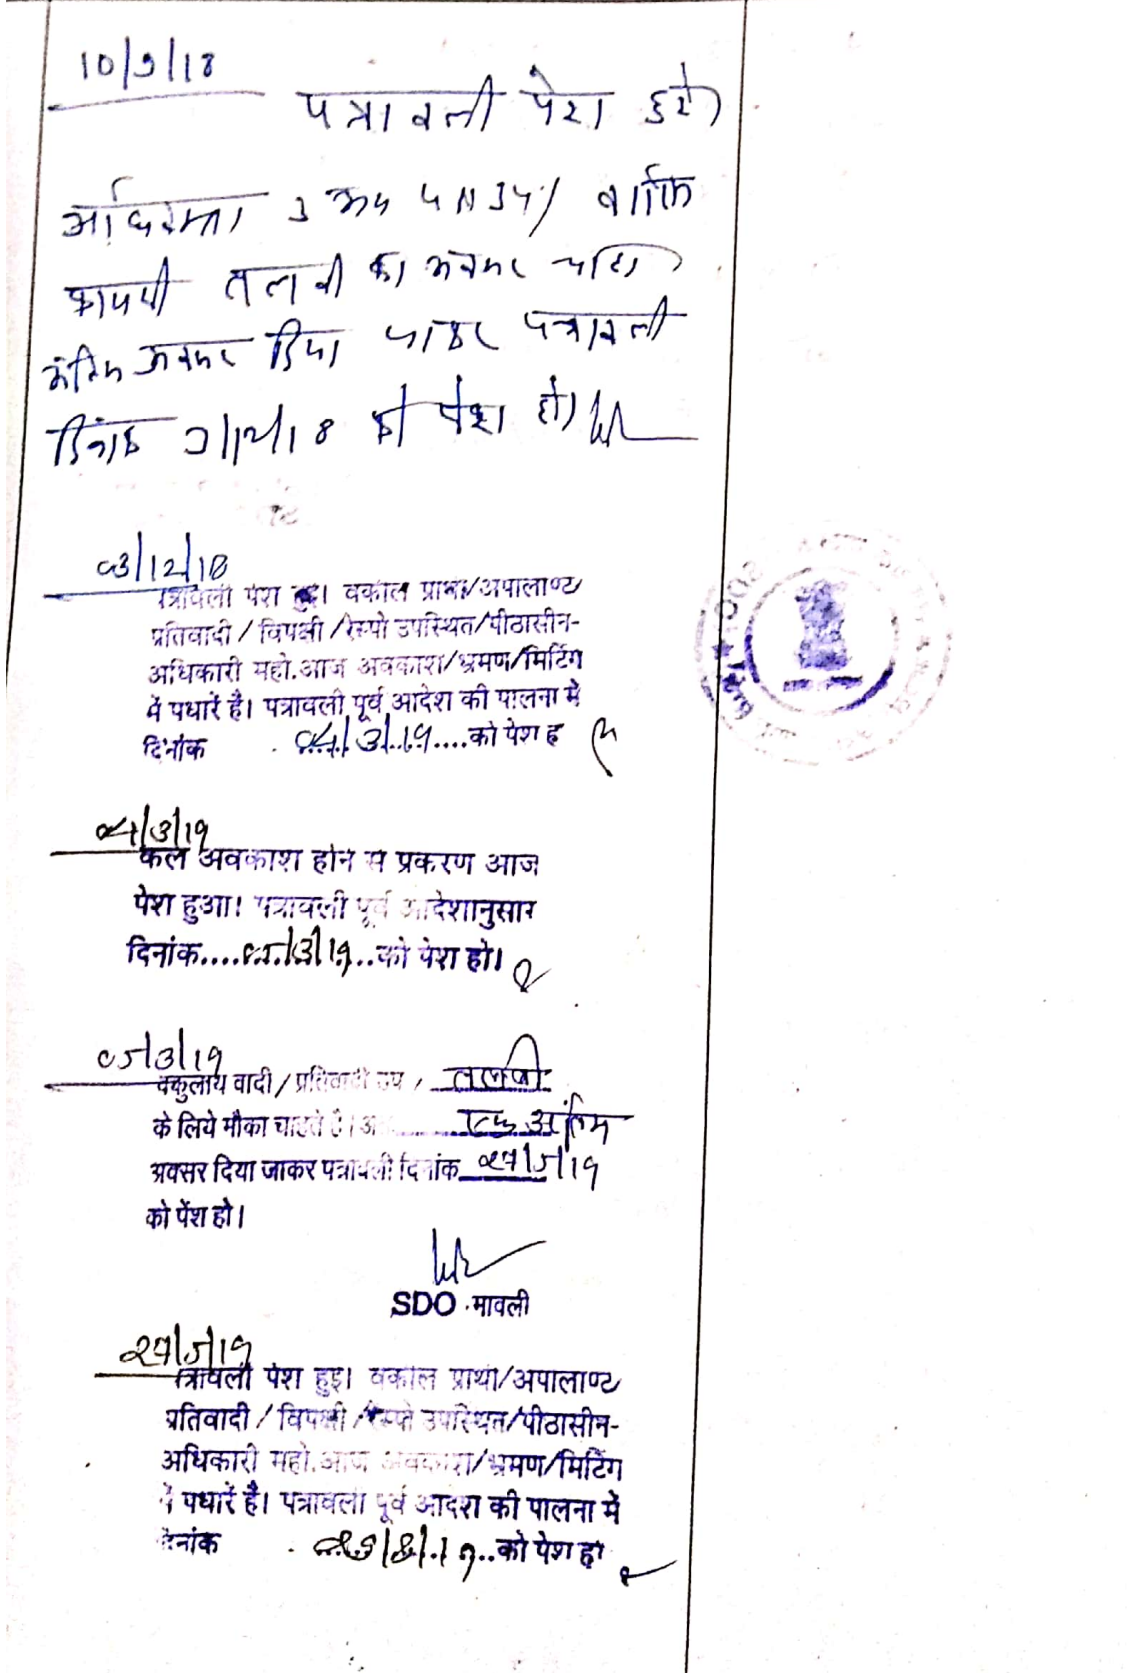 10/9/18
पत्रावली पेश हुई
अधिवक्ता उभय
तलबी का अवसर चाहा
अंतिम अवसर दिया जाकर पत्रावली
दिनांक 3/12/18 को पेश हो।
03/12/18
त्रावली पेश हुई। वकील प्रार्थी/अपीलाण्ट
प्रतिवादी / विपक्षी /रेस्पो उपस्थित/पीठासीन-
अधिकारी महो.आज अवकाश/भ्रमण/मिटिंग
में पधारें है। पत्रावली पूर्व आदेश की पालना में
दिनांक 04/3/19....को पेश ह
04/3/19
कल अवकाश होने से प्रकरण आज
पेश हुआ। पत्रावली पूर्व आदेशानुसार
दिनांक....05/3/19..को पेश हो।
05/3/19
वकुलाय वादी / प्रतिवादी उप , तलबी
के लिये मौका चाहते है। अ एक अंतिम
अवसर दिया जाकर पत्रावली दिनांक 27/5/19
को पेंश हो।
SDO मावली
27/5/19
त्रावली पेश हुई। वकील प्रार्थी/अपीलाण्ट
प्रतिवादी / विपक्षी /रेस्पो उपस्थित/पीठासीन-
अधिकारी महो.आज अवकाश/भ्रमण/मिटिंग
में पधारें है। पत्रावली पूर्व आदेश की पालना में
दिनांक को पेश हो